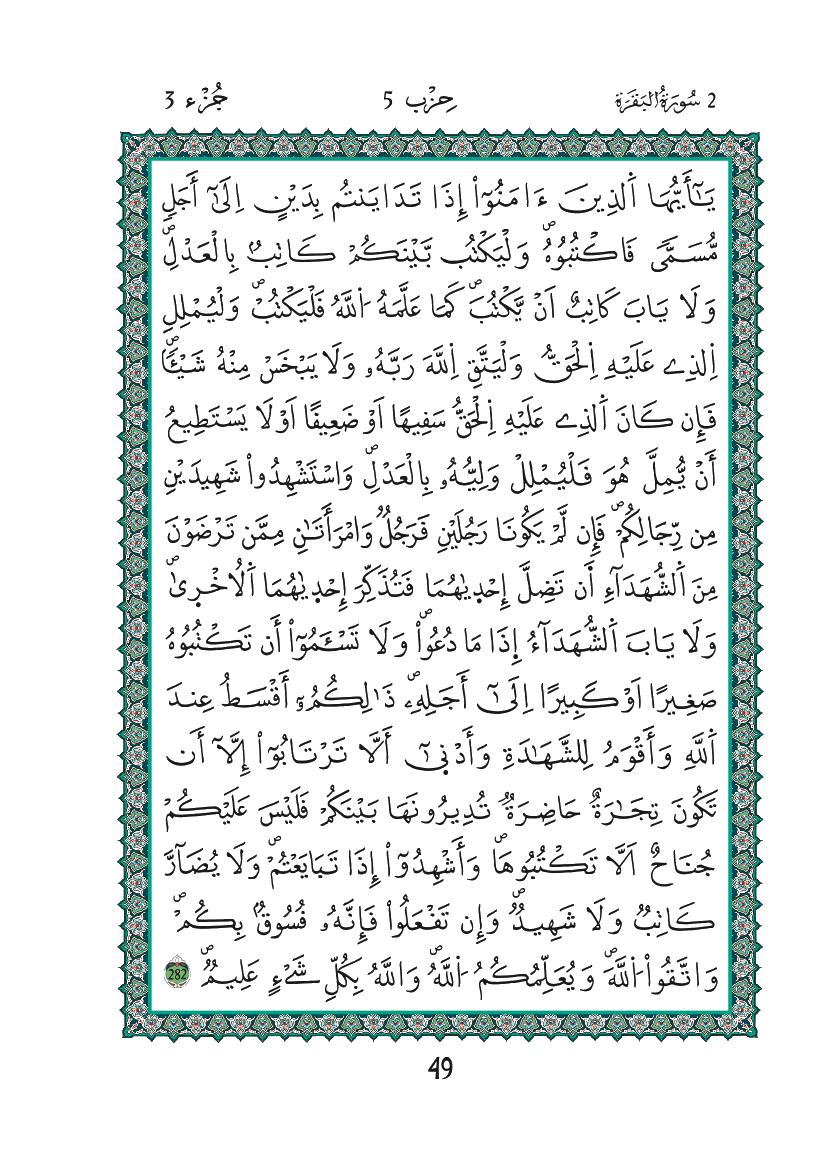 2 سُورَةُ الْبَقَرَة
حِزْب 5
جُزْء 3
يَٰٓأَيُّهَا اَ۬لذِينَ ءَامَنُوٓاْ إِذَا تَدَايَنتُم بِدَيْنٍ اِلَيٰٓ أَجَلٖ
مُّسَمّيٗ فَاكْتُبُوهُۖ وَلْيَكْتُب بَّيْنَكُمْ كَاتِبُۢ بِالْعَدْلِۖ
وَلَا يَابَ كَاتِبٌ اَنْ يَّكْتُبَۖ كَمَا عَلَّمَهُ اُ۬للَّهُ فَلْيَكْتُبْۖ وَلْيُمْلِلِ
اِ۬لذِے عَلَيْهِ اِ۬لْحَقُّۖ وَلْيَتَّقِ اِ۬للَّهَ رَبَّهُۥ وَلَا يَبْخَسْ مِنْهُ شَيْـٔٗاۖ
فَإِن كَانَ اَ۬لذِے عَلَيْهِ اِ۬لْحَقُّ سَفِيهًا اَوْ ضَعِيفًا اَوْ لَا يَسْتَطِيعُ
أَنْ يُّمِلَّ هُوَ فَلْيُمْلِلْ وَلِيُّهُۥ بِالْعَدْلِۖ وَاسْتَشْهِدُواْ شَهِيدَيْنِ
مِن رِّجَالِكُمْۖ فَإِن لَّمْ يَكُونَا رَجُلَيْنِ فَرَجُلٞ وَامْرَأَتَٰنِ مِمَّن تَرْضَوْنَ
مِنَ اَ۬لشُّهَدَآءِ أَن تَضِلَّ إِحْدٜيٰهُمَا فَتُذَكِّرَ إِحْدٜيٰهُمَا اَ۬لُاخْرٜيٰۖ
وَلَا يَابَ اَ۬لشُّهَدَآءُ إِذَا مَا دُعُواْۖ وَلَا تَسْـَٔمُوٓاْ أَن تَكْتُبُوهُ
صَغِيرًا اَوْ كَبِيرًا اِلَيٰٓ أَجَلِهِۦۖ ذَٰلِكُمُۥٓ أَقْسَطُ عِندَ
اَ۬للَّهِ وَأَقْوَمُ لِلشَّهَٰدَةِ وَأَدْنٜيٰٓ أَلَّا تَرْتَابُوٓاْ إِلَّآ أَن
تَكُونَ تِجَٰرَةٌ حَاضِرَةٞ تُدِيرُونَهَا بَيْنَكُمْ فَلَيْسَ عَلَيْكُمْ
جُنَاحٌ اَلَّا تَكْتُبُوهَاۖ وَأَشْهِدُوٓاْ إِذَا تَبَايَعْتُمْۖ وَلَا يُضَآرَّ
كَاتِبٞ وَلَا شَهِيدٞۖ وَإِن تَفْعَلُواْ فَإِنَّهُۥ فُسُوقُۢ بِكُمْۖ
وَاتَّقُواْ اُ۬للَّهَۖ وَيُعَلِّمُكُمُ اُ۬للَّهُۖ وَاللَّهُ بِكُلِّ شَےْءٍ عَلِيمٞۖ 282
49